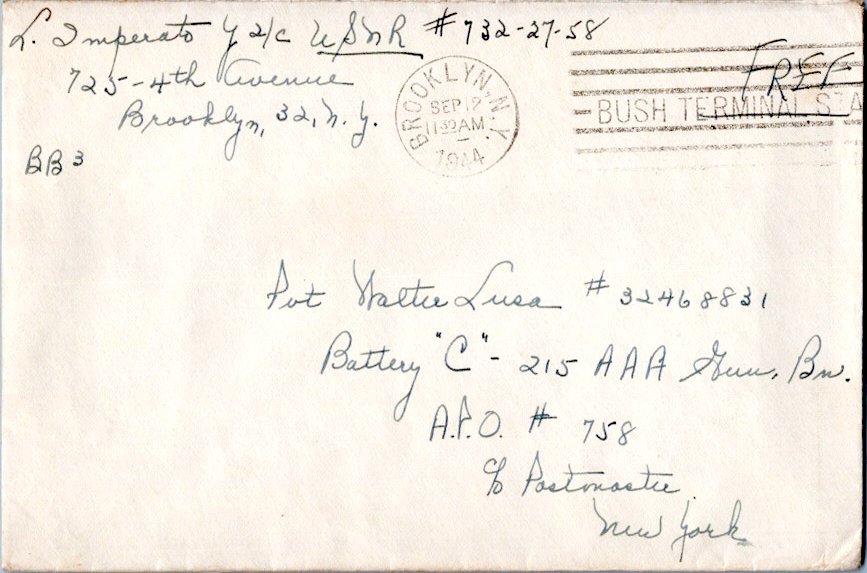 L. Imperato Y 2/c USNR # 732-27-58
725-4th Avenue
Brooklyn, 32, N.Y.
BB3
BROOKLYN, N.Y.
SEP 12
11 30 AM
1944
FREE
BUSH TERMINAL STA
Pvt Walter Lusa # 32468831
Battery "C" - 215 AAA Gun. Bn.
A.P.O. # 758
c/o Postmaster
New York